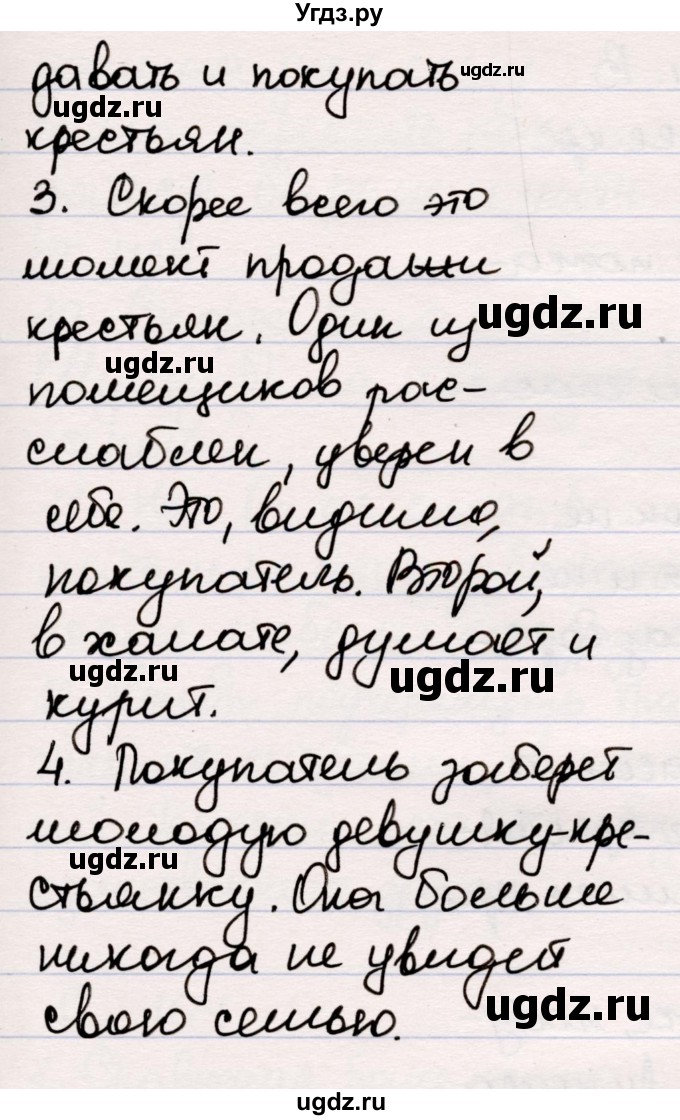 Угдз.ру
давать и покупать
ugdz.ru
ugdz.ru
крестьян.
3. Скорее всего это
момент продажи
крестьян. Один из
ugdz.ru
ugdz.ru
помещиков рас-
слаблен, уверен в
себе. Это, видимо,
покупатель. Второй,
в халате, думает и
ugdz.ru
ugdz.ru
курит.
4. Покупатель заберет
молодую девушку-кре-
ugdz.ru
стьянку. Она больше
никогда не увидет
свою семью.
ugdz.ru
ugdz.ru